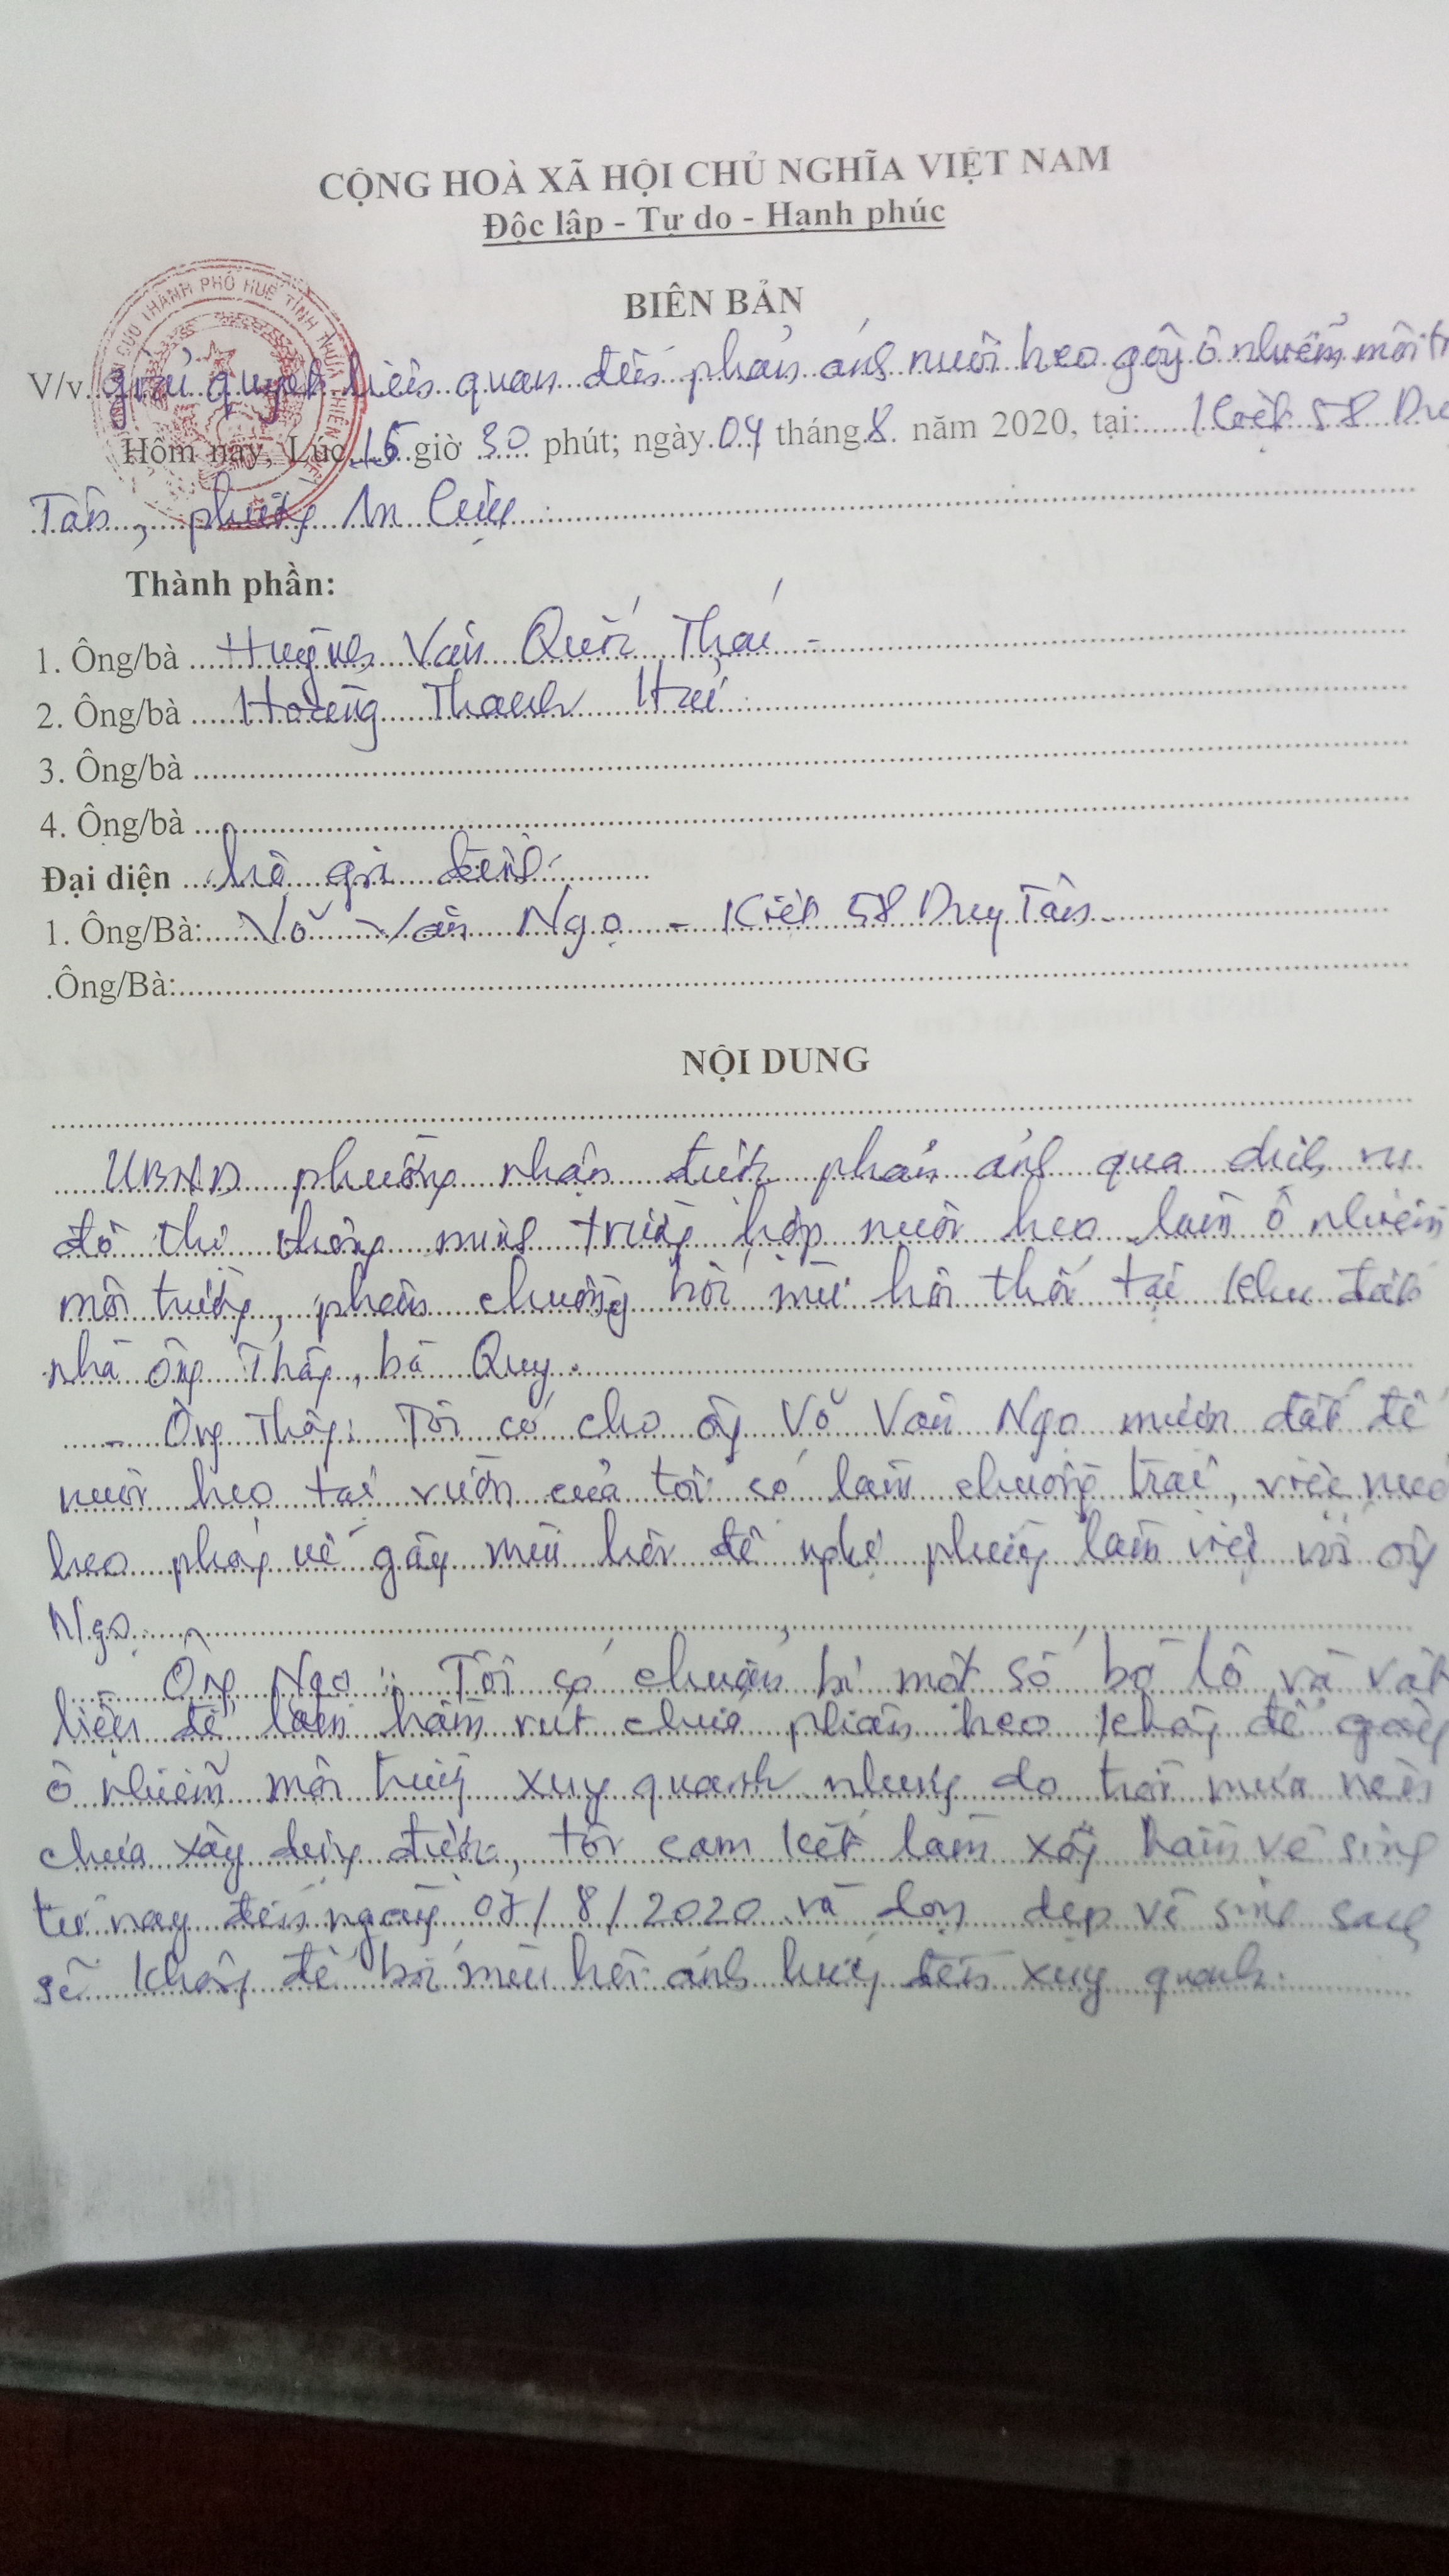 CỘNG HOÀ XÃ HỘI CHỦ NGHĨA VIỆT NAM
Độc lập - Tự do - Hạnh phúc
BIÊN BẢN
V/v giải quyết liên quan đến phản ánh nuôi heo gây ô nhiễm môi tr
Hôm nay, Lúc 15 giờ 30 phút; ngày 04 tháng 8 năm 2020, tại: Kiệt 58 Duy
Tân, phường An Cựu
Thành phần:
1. Ông/bà Huỳnh Văn Quốc Thái
2. Ông/bà Hoàng Thanh Huế
3. Ông/bà
4. Ông/bà
Đại diện hộ gia đình
1. Ông/Bà: Võ Văn Ngọ - Kiệt 58 Duy Tân
.Ông/Bà:
NỘI DUNG
UBND phường nhận được phản ánh qua dịch vụ
đô thị thông minh trường hợp nuôi heo làm ô nhiễm
môi trường, phân chuồng hôi mùi hôi thối tại khu đất
nhà ông Thây, bà Quy.
- Ông Thây: Tôi có cho ông Võ Văn Ngọ mượn đất để
nuôi heo tại vườn của tôi có làm chuồng trại, việc nuô
heo gây mùi hôi đề nghị phường làm việc với ông
Ngọ.
Ông Ngọ: Tôi có chuẩn bị một số bờ lô và vật
liệu để làm hầm rút chứa phân heo không để gây
ô nhiễm môi trường xuy quanh nhưng do trời mưa nên
chưa xây dựng được, tôi cam kết làm xây hầm vệ sinh
từ nay đến ngày 07/8/2020 và dọn dẹp vệ sinh sạch
sẽ không để bốc mùi hôi ảnh hưởng đến xuy quanh.